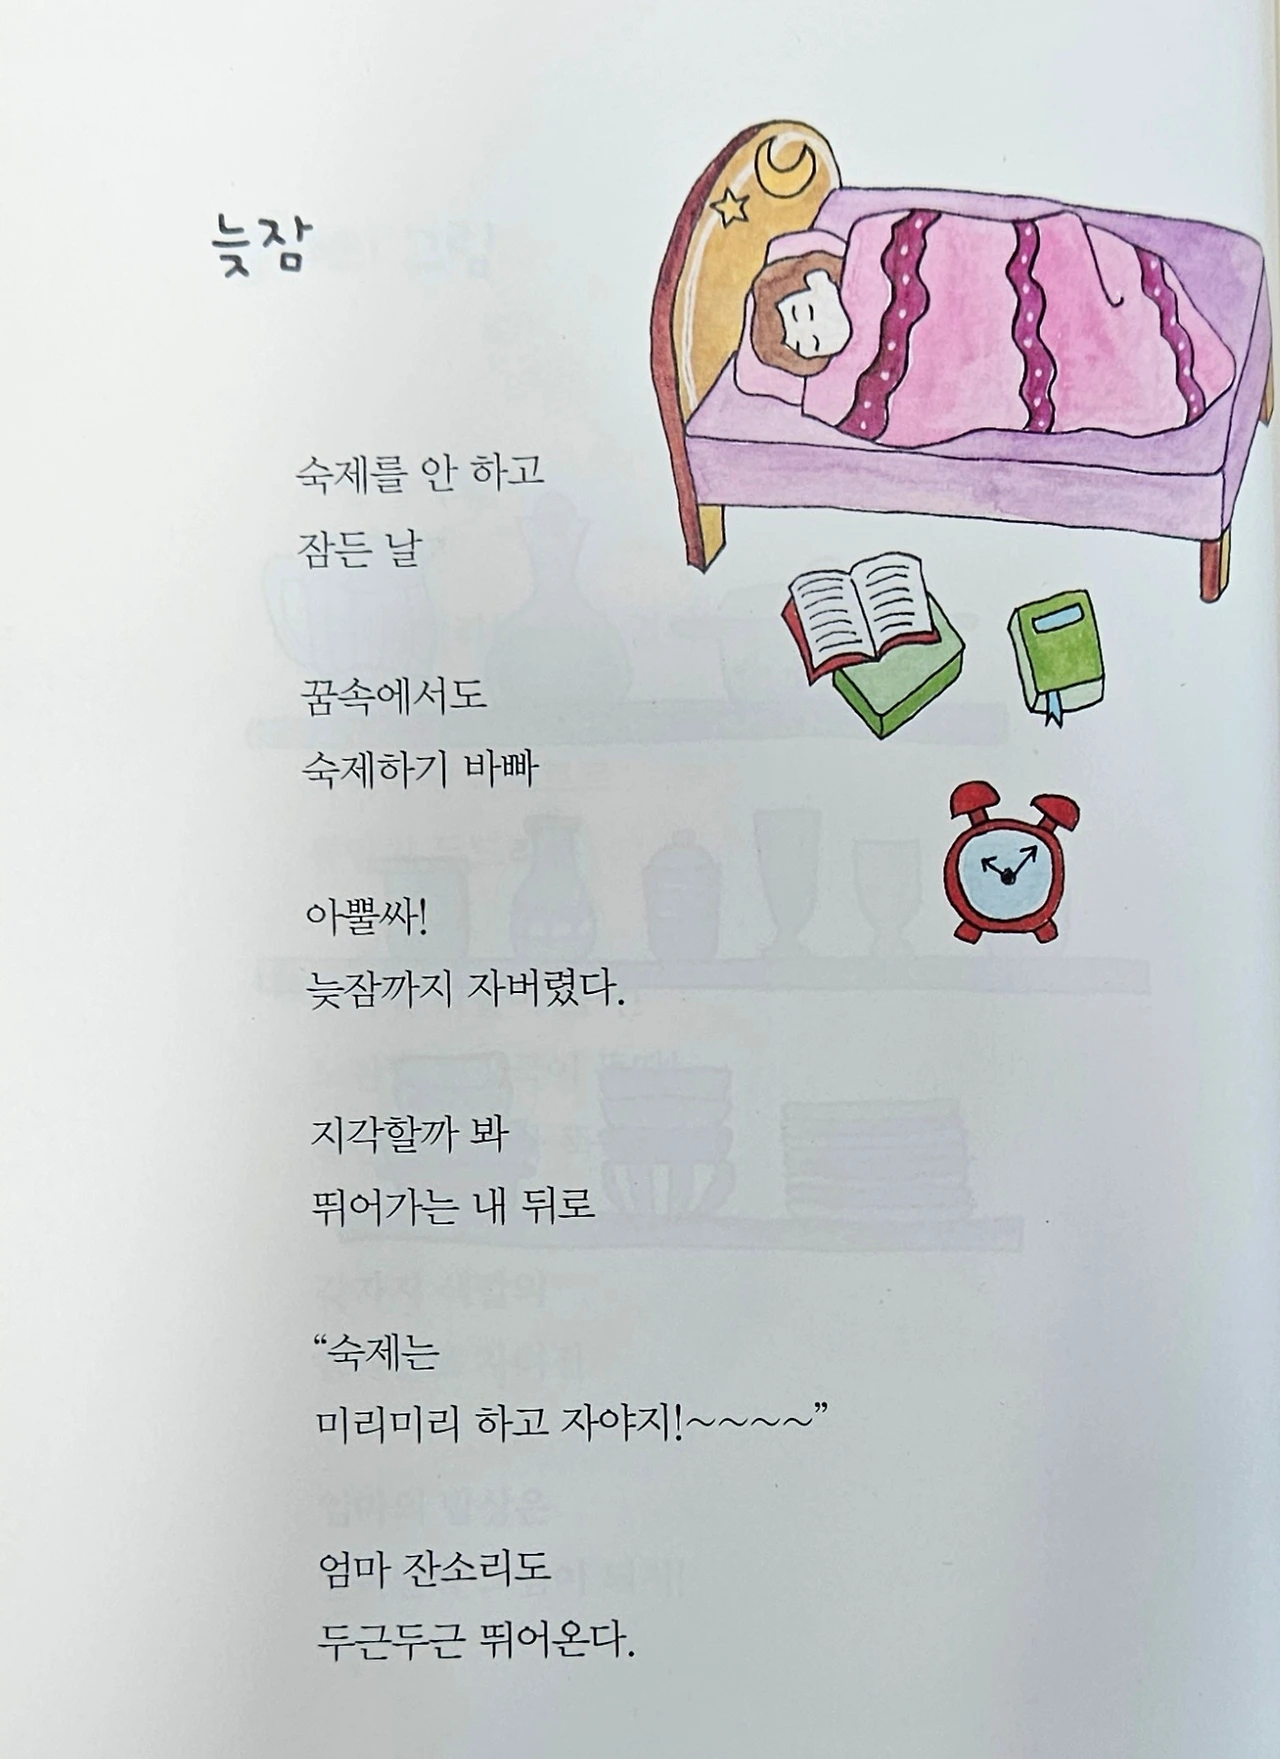 늦잠
숙제를 안 하고
잠든 날
꿈속에서도
숙제하기 바빠
아뿔싸!
늦잠까지 자버렸다.
지각할까 봐
뛰어가는 내 뒤로
“숙제는
미리미리 하고 자야지!~~~~”
엄마 잔소리도
두근두근 뛰어온다.